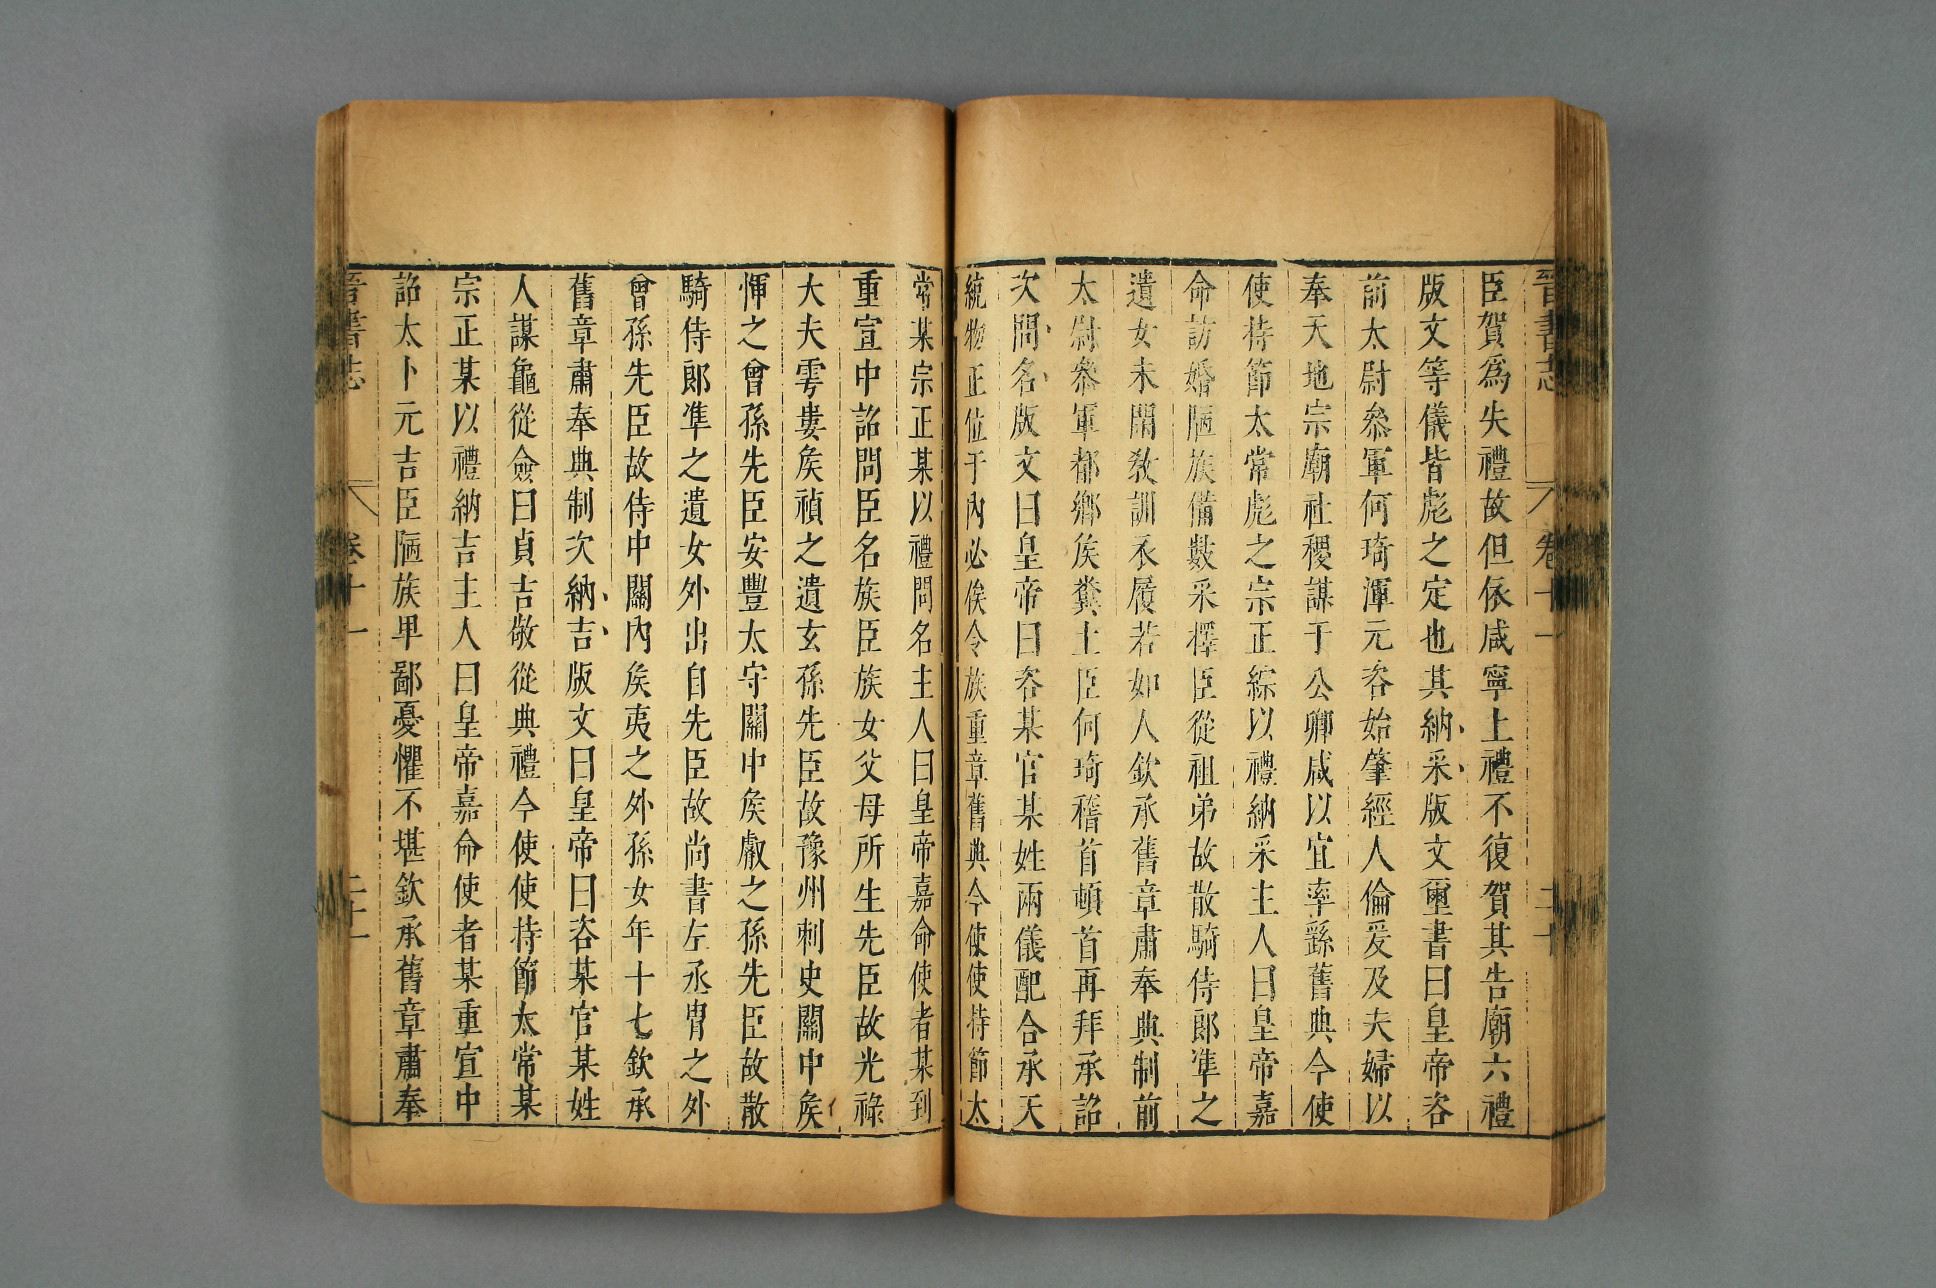 晉書志 卷十一 二十
臣賀爲失禮故但依咸寧上禮不復賀其告廟六禮
版文等儀皆彪之定也其納采版文璽書曰皇帝咨
前太尉叅軍何琦渾元咨始肇經人倫爰及夫婦以
奉天地宗廟社稷謀于公卿咸以宜率繇舊典今使
使持節太常彪之宗正綜以禮納采主人曰皇帝嘉
命訪婚陋族備數采擇臣從祖弟故散騎侍郎準之
遺女未閑敎訓衣履若如人欽承舊章肅奉典制前
太尉叅軍都鄉矦糞土臣何琦稽首頓首再拜承詔
次問名版文曰皇帝曰咨某官某姓兩儀配合承天
統物正位于內必俟令族重章舊典今使使持節太
常某宗正某以禮問名主人曰皇帝嘉命使者某到
重宣中詔問臣名族臣族女父母所生先臣故光祿
大夫雩婁矦禎之遺玄孫先臣故豫州刺史關中矦
惲之曾孫先臣安豐太守關中矦叡之孫先臣故散
騎侍郎準之遺女外出自先臣故尚書左丞胄之外
曾孫先臣故侍中關內矦夷之外孫女年十七欽承
舊章肅奉典制次納吉版文曰皇帝曰咨某官某姓
人謀龜從僉曰貞吉敬從典禮今使使持節太常某
宗正某以禮納吉主人曰皇帝嘉命使者某重宣中
詔太卜元吉臣陋族卑鄙憂懼不堪欽承舊章肅奉
晉書志 卷十一 二十一